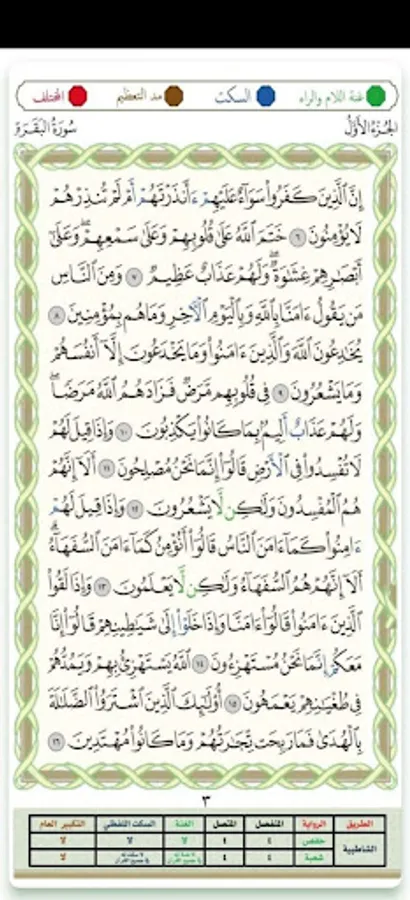 غنة اللام والراء السكت مد التعظيم المختلف
الجزء الأول سورة البقرة
إِنَّ ٱلَّذِينَ كَفَرُوا۟ سَوَآءٌ عَلَيْهِمْ ءَأَنذَرْتَهُمْ أَمْ لَمْ تُنذِرْهُمْ
لَا يُؤْمِنُونَ ٦ خَتَمَ ٱللَّهُ عَلَىٰ قُلُوبِهِمْ وَعَلَىٰ سَمْعِهِمْ ۖ وَعَلَىٰٓ
أَبْصَٰرِهِمْ غِشَٰوَةٌ ۖ وَلَهُمْ عَذَابٌ عَظِيمٌ ٧ وَمِنَ ٱلنَّاسِ
مَن يَقُولُ ءَامَنَّا بِٱللَّهِ وَبِٱلْيَوْمِ ٱلْءَاخِرِ وَمَا هُم بِمُؤْمِنِينَ ٨
يُخَٰدِعُونَ ٱللَّهَ وَٱلَّذِينَ ءَامَنُوا۟ وَمَا يَخْدَعُونَ إِلَّآ أَنفُسَهُمْ
وَمَا يَشْعُرُونَ ٩ فِى قُلُوبِهِم مَّرَضٌ فَزَادَهُمُ ٱللَّهُ مَرَضًا ۖ
وَلَهُمْ عَذَابٌ أَلِيمٌۢ بِمَا كَانُوا۟ يَكْذِبُونَ ١٠ وَإِذَا قِيلَ لَهُمْ
لَا تُفْسِدُوا۟ فِى ٱلْأَرْضِ قَالُوٓا۟ إِنَّمَا نَحْنُ مُصْلِحُونَ ١١ أَلَآ إِنَّهُمْ
هُمُ ٱلْمُفْسِدُونَ وَلَٰكِن لَّا يَشْعُرُونَ ١٢ وَإِذَا قِيلَ لَهُمْ
ءَامِنُوا۟ كَمَآ ءَامَنَ ٱلنَّاسُ قَالُوٓا۟ أَنُؤْمِنُ كَمَآ ءَامَنَ ٱلسُّفَهَآءُ ۗ
أَلَآ إِنَّهُمْ هُمُ ٱلسُّفَهَآءُ وَلَٰكِن لَّا يَعْلَمُونَ ١٣ وَإِذَا لَقُوا۟
ٱلَّذِينَ ءَامَنُوا۟ قَالُوٓا۟ ءَامَنَّا وَإِذَا خَلَوْا۟ إِلَىٰ شَيَٰطِينِهِمْ قَالُوٓا۟ إِنَّا
مَعَكُمْ إِنَّمَا نَحْنُ مُسْتَهْزِءُونَ ١٤ ٱللَّهُ يَسْتَهْزِئُ بِهِمْ وَيَمُدُّهُمْ
فِى طُغْيَٰنِهِمْ يَعْمَهُونَ ١٥ أُو۟لَٰٓئِكَ ٱلَّذِينَ ٱشْتَرَوُا۟ ٱلضَّلَٰلَةَ
بِٱلْهُدَىٰ فَمَا رَبِحَت تِّجَٰرَتُهُمْ وَمَا كَانُوا۟ مُهْتَدِينَ ١٦
٣
الطريق الرواية المنفصل المتصل الغنة السكت اللفظي التكبير العام
الشاطبية حفص ٤ ٤ لا لا لا
شعبة ٤ ٤ لا